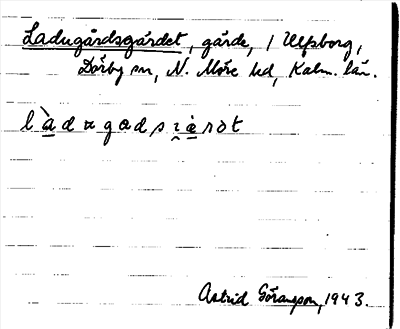 Ladugårdsgärdet, gärde, / Ulfsborg,
Dörby sn, N. Möre hd, Kalm. län.
làdugadsɿ̯æ̀rət
Astrid Göransson, 1943.